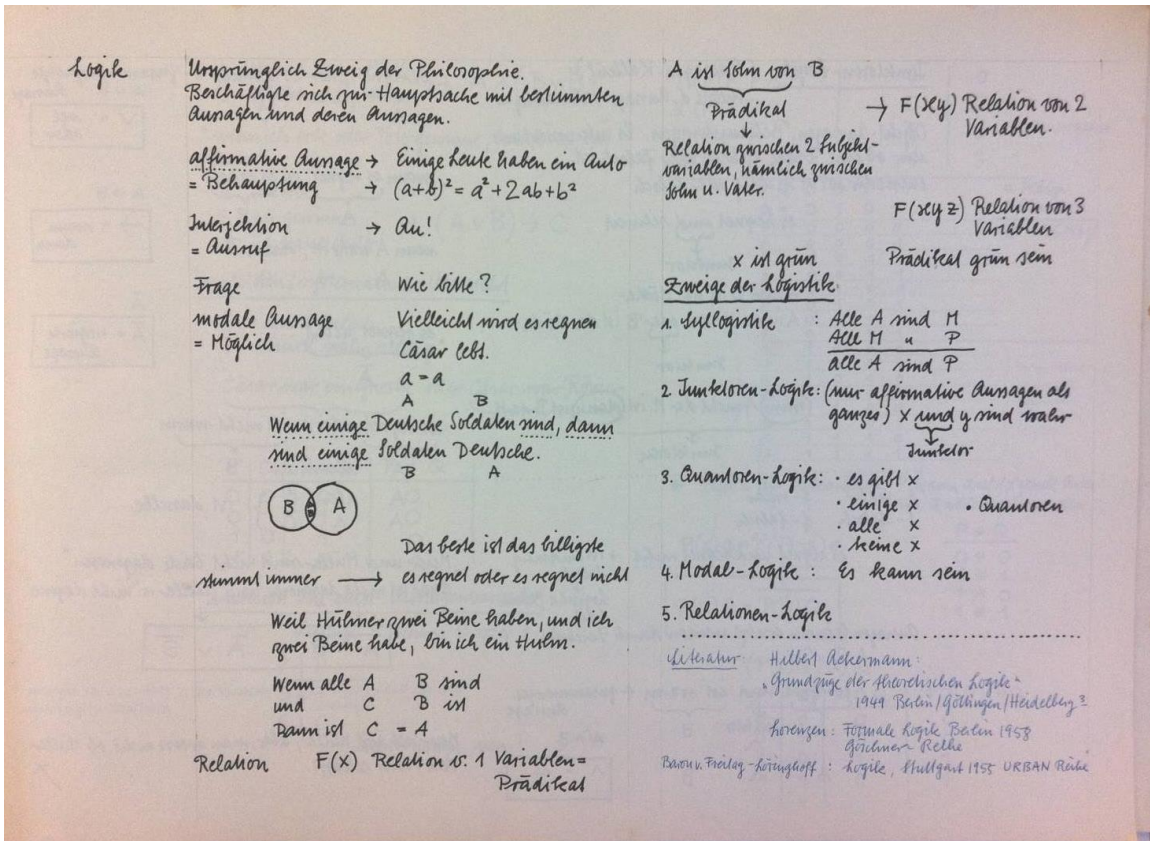 Logik
Ursprünglich Zweig der Philosophie.
Beschäftigte sich zur Hauptsache mit bestimmten
Aussagen und deren Aussagen.
affirmative Aussage → Einige Leute haben ein Auto
= Behauptung → (a+b)² = a² + 2ab + b²
Interjektion → Au!
= Ausruf
Frage Wie bitte?
modale Aussage Vielleicht wird es regnen
= Möglich Cäsar lebt.
a = a
A B
Wenn einige Deutsche Soldaten sind, dann
sind einige Soldaten Deutsche.
B A
B A
Das beste ist das billigste
stimmt immer → es regnet oder es regnet nicht
Weil Hühner zwei Beine haben, und ich
zwei Beine habe, bin ich ein Huhn.
Wenn alle A B sind
und C B ist
Dann ist C = A
Relation F(x) Relation v. 1 Variablen =
Prädikat
A ist Sohn von B
Prädikat
→ F(xy) Relation von 2
Variablen.
Relation zwischen 2 Subjekt-
variablen, nämlich zwischen
Sohn u. Vater.
F(xyz) Relation von 3
Variablen
x ist grün Prädikat grün sein
Zweige der Logistik
1. Syllogistik : Alle A sind M
Alle M " P
alle A sind P
2. Junktoren-Logik: (nur affirmative Aussagen als
ganzes) x und y sind wahr
Junktor
3. Quantoren-Logik: · es gibt x
· einige x • Quantoren
· alle x
· keine x
4. Modal-Logik : Es kann sein
5. Relationen-Logik
Literatur: Hilbert Ackermann:
„Grundzüge der theoretischen Logik"
1949 Berlin/Göttingen/Heidelberg
Lorenzen: Formale Logik Berlin 1958
Göschen Reihe
Baron v. Freitag-Löringhoff : Logik, Stuttgart 1955 URBAN Reihe